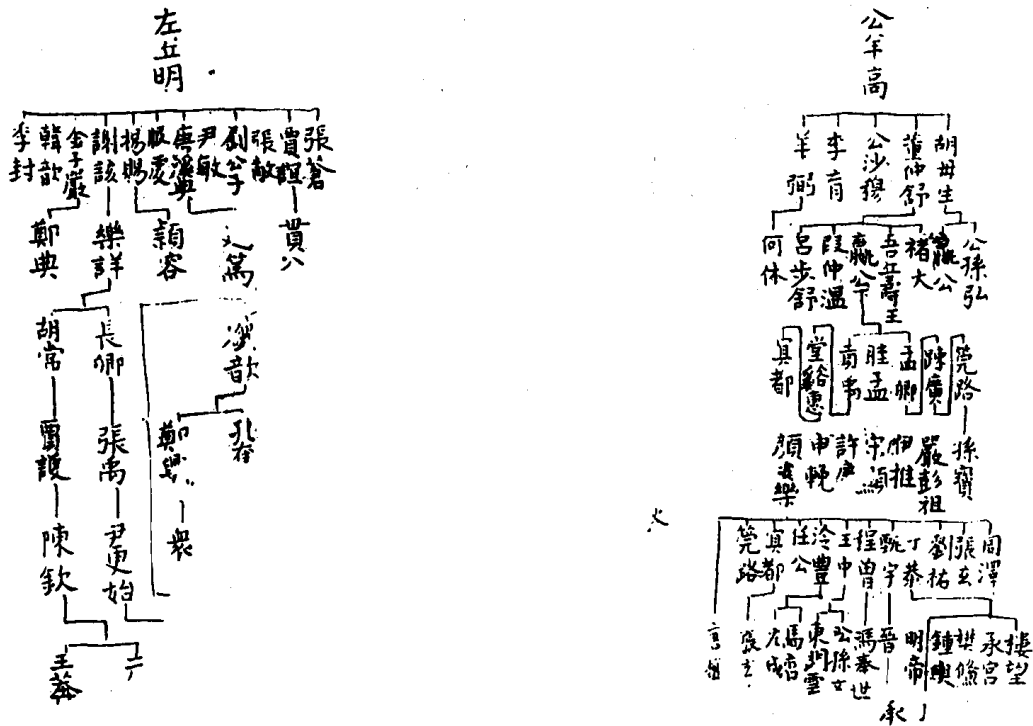 公羊高
胡毋生
董仲舒
公沙穆
李育
羊弼
公孫弘
嬴公
褚大
吾丘壽王
嬴公
段仲溫
呂步舒
何休
筦路
疎廣
孟卿
眭孟
貢禹
堂谿惠
冥都
孫寶
嚴彭祖
申輓
顏安樂
周澤
張玄
劉祐
丁恭
甄宇
程曾
王中
泠豐
任公
冥都
筦路
樓望
承宮
樊儵
鍾興
明帝
晉
馮奉世
公孫文
東門雲
馬宮
左咸
承
左丘明
張蒼
賈誼
張敞
劉公子
尹敏
唐溪典
服虔
揚賜
謝該
金子嚴
韓歆
李封
貫公
潁容
樂詳
鄭典
長卿
胡常
孔奮
張禹
賈護
衆
尹更始
陳欽
王莽